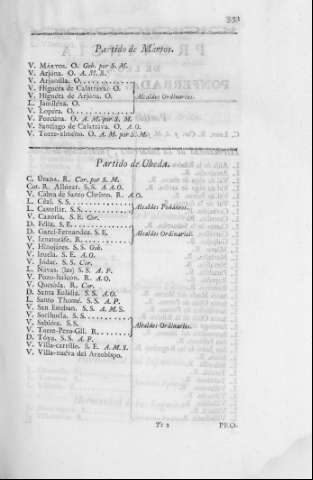 331
Partido de Martos.
V. MARTOS. O. Gob. por S. M.
V. Arjona. O. A. M. S.
V. Arjonilla. O.
V. Higuera de Calatrava. O.
V. Higuera de Arjona. O.
L. Jamilena. O.
V. Lopera. O.
Alcaldes Ordinarios.
V. Porcuna. O. A. M. por S. M.
V. Santiago de Calatrava. O. A.O.
V. Torre-ximeno. O. A. M. por S. M.
Partido de Ubeda.
C. Úbeda. R. Cor. por S. M.
Cot. R. Albúnar. S.S. A.O.
V. Cabra de Santo Christo. R. A.O.
L. Cézal. S.S.
L. Castellar. S.S.
Alcaldes Pedáneos.
V. Cazorla. S E. Cor.
D. Felix. S.E.
D. Garci-Fernandez. S E.
V. Iznatoráfe. R.
Alcaldes Ordinarios.
V. Hinojáres. S S. Gob.
V. Iruela. S E. A.O.
V. Jódar. S S. Cor.
L. Návas. (las) S S. A. P.
V. Pozo-halcon. R. A.O.
V. Quesáda. R. Cor.
D. Santa Eulália. S S. A.O.
L. Santo Thomé. S S. A. P.
V. San Esteban. S S. A. M. S.
V. Sorihuela. S S.
V. Sabióte. S S.
V. Torre-Pero-Gil. R.
Alcaldes Ordinarios.
D. Tóya. S S. A. P.
V. Villa-carrillo. S E. A.M.S.
V. Villa-nuéva del Arzobispo.
Tt 2
PRO-